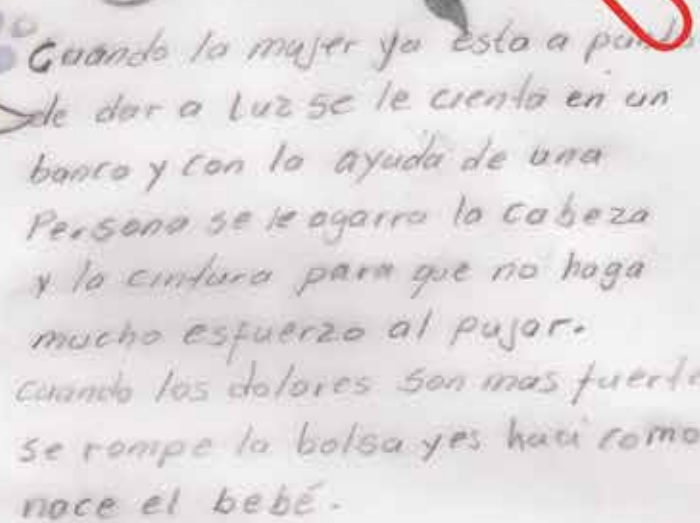 Cuando la mujer ya esta a punto
de dar a luz se le cienta en un
banco y con la ayuda de una
Persona se le agarra la cabeza
y la cintura para que no haga
mucho esfuerzo al pujar.
cuando los dolores son mas fuerte
se rompe la bolsa y es haci como
nace el bebé.